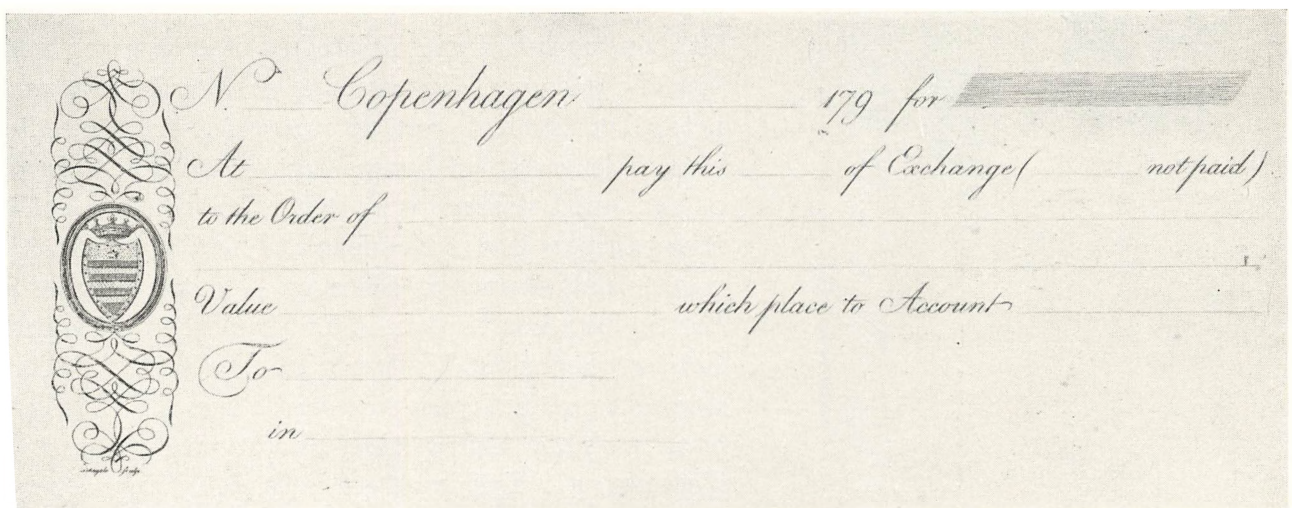 N. Copenhagen 179 for
At pay this of Exchange ( not paid )
to the Order of
Value which place to Account
To
in